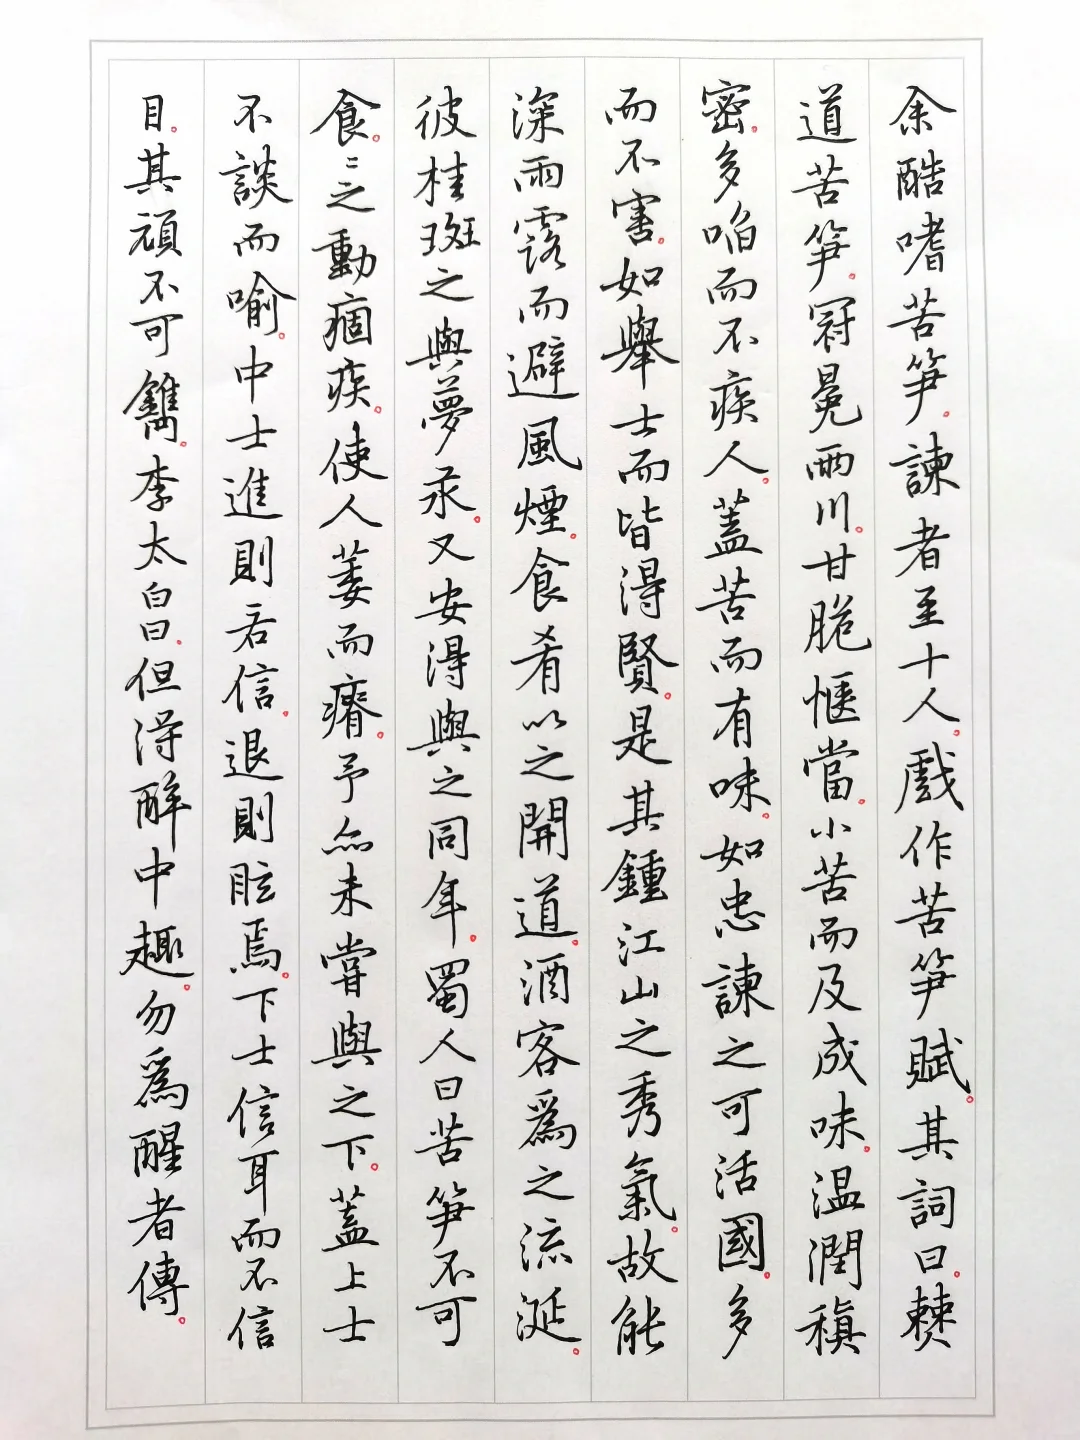 余酷嗜苦笋。諫者至十人。戲作苦笋賦。其詞曰。僰
道苦笋。冠冕兩川。甘脆愜當。小苦而及成味。温潤稹
密。多啗而不疾人。蓋苦而有味。如忠諫之可活國。多
而不害。如舉士而皆得賢。是其鍾江山之秀氣。故能
深雨露而避風煙。食肴以之開道。酒客為之流涎。
彼桂斑之與夢汞。又安得與之同年。蜀人曰苦笋不可
食。〻之動痼疾。使人萎而瘠。予亦未嘗與之下。蓋上士
不談而喻。中士進則若信。退則眩焉。下士信耳而不信
目。其頑不可鐫。李太白曰。但得醉中趣。勿為醒者傳。